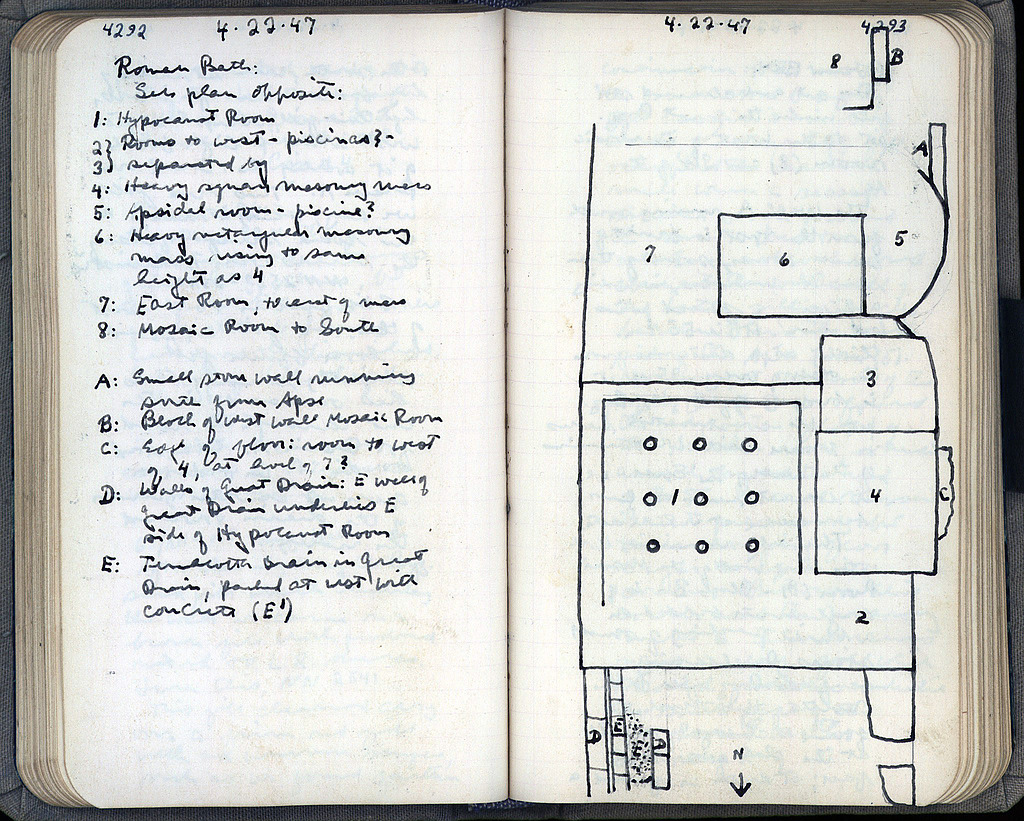 4292
4·22·47
Roman Bath:
See plan opposite:
1: Hypocaust Room
2} Rooms to west - piscinas? -
3} separated by
4: Heavy square masonry mass
5: Apsidal room - piscine?
6: Heavy rectangular masonry
mass, rising to same
height as 4
7: East Room, to east of mass
8: Mosaic Room to South
A: Small stone wall running
south from Apse
B: Block of west wall Mosaic Room
C: Edge of floor: room to west
of 4, at level of 7?
D: Walls of Great Drain: E wall of
Great Drain underlies E
side of Hypocaust Room
E: Terracotta Drain in Great
Drain, packed at west with
concrete (E')
4·22·47
4293
8
B
A
7
6
5
3
1
4
C
2
D
E
E'
D
N